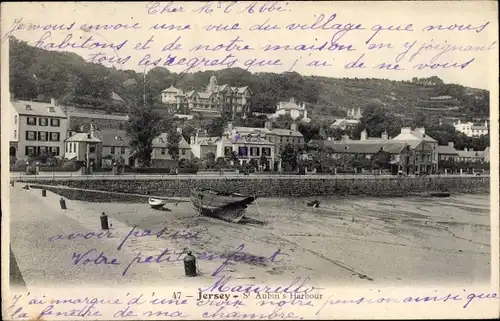 Cher Mr l'Abbé
Je vous envoie une vue du village que nous
habitons et de notre maison en m'y joignant
tous les regrets que j'ai de ne
avoir pas
Votre petit enfant
Maurille
47 - Jersey - St Aubin's Harbour
J'ai marqué d'une croix notre pension ainsi que
la fenêtre de ma chambre.